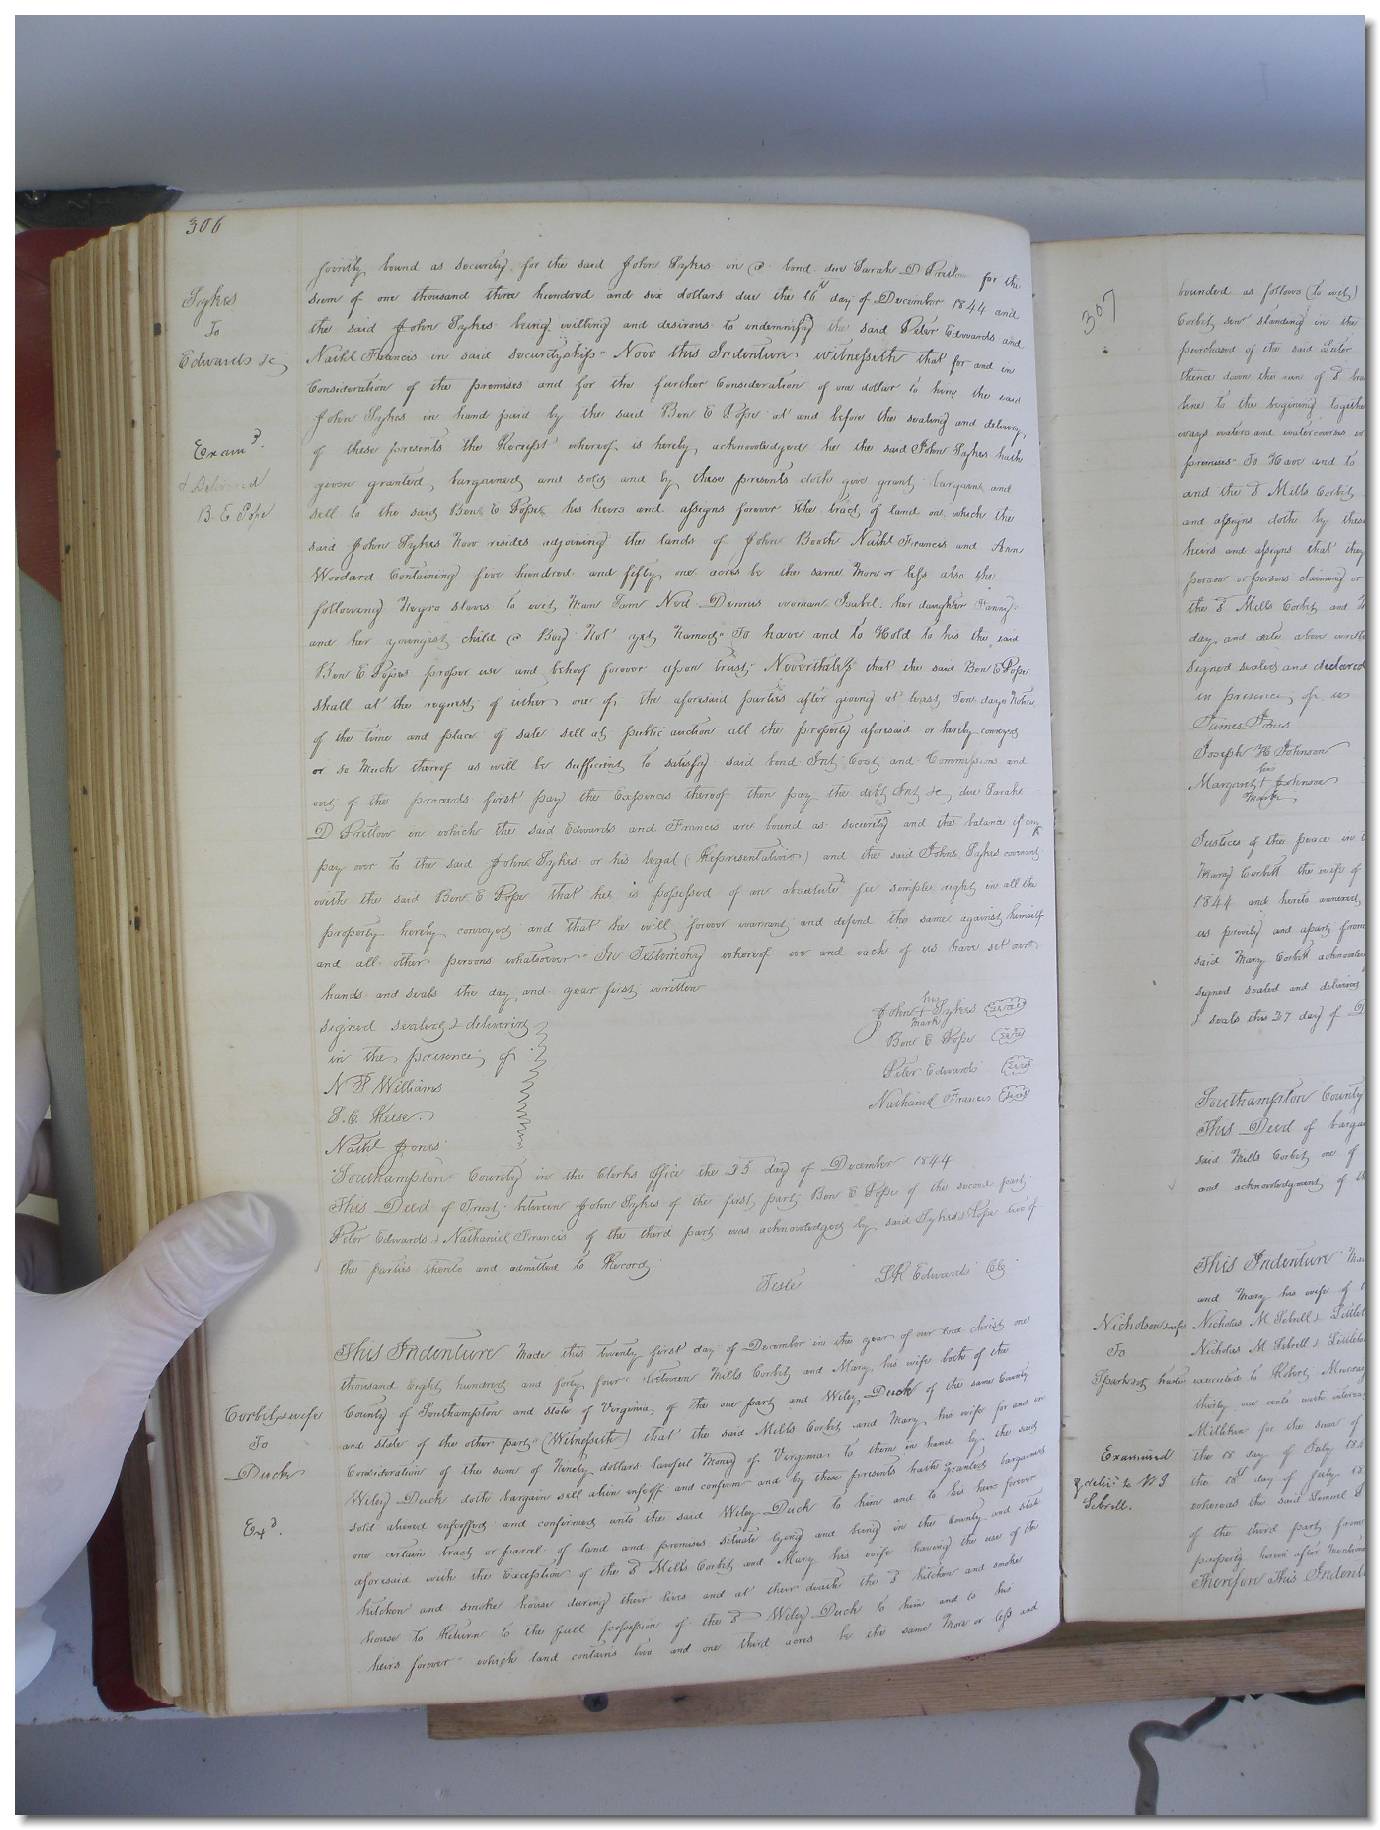 306
Sykes
To
Edwards &c
Exam.d
& Delivered
B. E. Pope
jointly bound as security for the said John Sykes in a bond due Sarah D Pretlow for the
sum of one thousand three hundred and six dollars due the 16th day of December 1844 and
the said John Sykes being willing and desirous to indemnify the said Peter Edwards and
Nathl Francis in said securityship Now this Indenture witnesseth that for and in
Consideration of the premises and for the further Consideration of one dollar to him the said
John Sykes in hand paid by the said Ben E Pope at and before the sealing and delivery
of these presents the Receipt whereof is hereby acknowledged he the said John Sykes hath
given granted bargained and sold and by these presents doth give grant bargain and
sell to the said Ben E Pope his heirs and assigns forever the tract of land on which the
said John Sykes Now resides adjoining the lands of John Booth Nathl Francis and Ann
Woodard Containing five hundred and fifty one acres be the same More or less also the
following Negro slaves to wit, Man Sam Ned Dennis woman Isabel her daughter Fanny
and her youngest child a Boy Not yet Named To have and to Hold to his the said
Ben E Popes proper use and behoof forever upon trust Nevertheless that the said Ben E Pope
shall at the request of either one of the aforesaid parties after giving at least Ten days Notice
of the time and place of sale sell at public auction all the property aforesaid or hereby conveyed
or so Much thereof as will be sufficient to satisfy said bond Int Cost and Commissions and
out of the proceeds first pay the Expences thereof then pay the debt Int &c due Sarah
D Pretlow in which the said Edwards and Francis are bound as security and the balance if any
pay over to the said John Sykes or his legal (Representatives) and the said John Sykes covenants
with the said Ben E Pope that he is possessed of an absolute fee simple right in all the
property hereby conveyed and that he will forever warrant and defend the same against himself
and all other persons whatsoever In Testimony whereof we and each of us have set our
hands and seals the day and year first written
signed sealed & delivered
in the presence of
N P Williams
Nathl Jones
his
John + Sykes seal
mark
Ben E Pope seal
Peter Edwards seal
Nathaniel Francis seal
Southampton County in the Clerks Office the 23 day of December 1844
This Deed of Trust between John Sykes of the first part Ben E Pope of the second part
Peter Edwards & Nathaniel Francis of the third part was acknowledged by said Sykes & Pope two of
the parties thereto and admitted to Record
Teste
Edwards Clk
Corbit & wife
To
Duck
Exd.
This Indenture Made this twenty first day of December in the year of our Christ one
thousand Eight hundred and forty four between Mills Corbit and Mary his wife both of the
County of Southampton and state of Virginia of the one part and Wiley Duck of the same County
and state of the other part (Witnesseth) that the said Mills Corbit and Mary his wife for and in
Consideration of the sum of Ninety dollars lawful Money of Virginia to them in hand by the said
Wiley Duck doth bargain sell alien enfeoff and confirm and by these presents hath granted bargained
sold aliened enfeoffed and confirmed unto the said Wiley Duck to him and to his heirs forever
one certain tract or parcel of land and premises situate lying and being in the County and state
aforesaid with the Exception of the sd Mills Corbit and Mary his wife having the use of the
kitchen and smoke house during their lives and at their death the sd kitchen and smoke
house to Return to the full possession of the sd Wiley Duck to him and to his
heirs forever which land contains two and one third acres be the same More or less and
307
bounded as follows (to wit)
Corbit standing in the
purchased of the said
thence down the run of sd
line to the begining
ways waters and watercourses
premises To Have and to
and the sd Mills Corbit
and assigns doth by these
heirs and assigns that they
person or persons claiming or
the sd Mills Corbit and
day and date above
signed sealed and declared
in presence of us
James
Joseph H Johnson
her
Margaret + Johnson
mark
Justices of the peace in
Mary Corbitt the wife of
1844 and hereto annexed
us privily and apart from
said Mary Corbit
signed sealed and delivered
& seals this 27 day of
Southampton County
This Deed of
said Mills Corbit one of
and acknowledgment of
This Indenture
and Mary his wife of
Nicholas M Sebrell &
Nicholas M Sebrell &
executed to Robert
thirty one cents with
Milliken for the sum of
the 18 day of July
the 18th day of July
whereas the said
of the third party from
property herein after
Therefore This
Nicholson & wife
To
Examined
& delivd to N J
Sebrell.